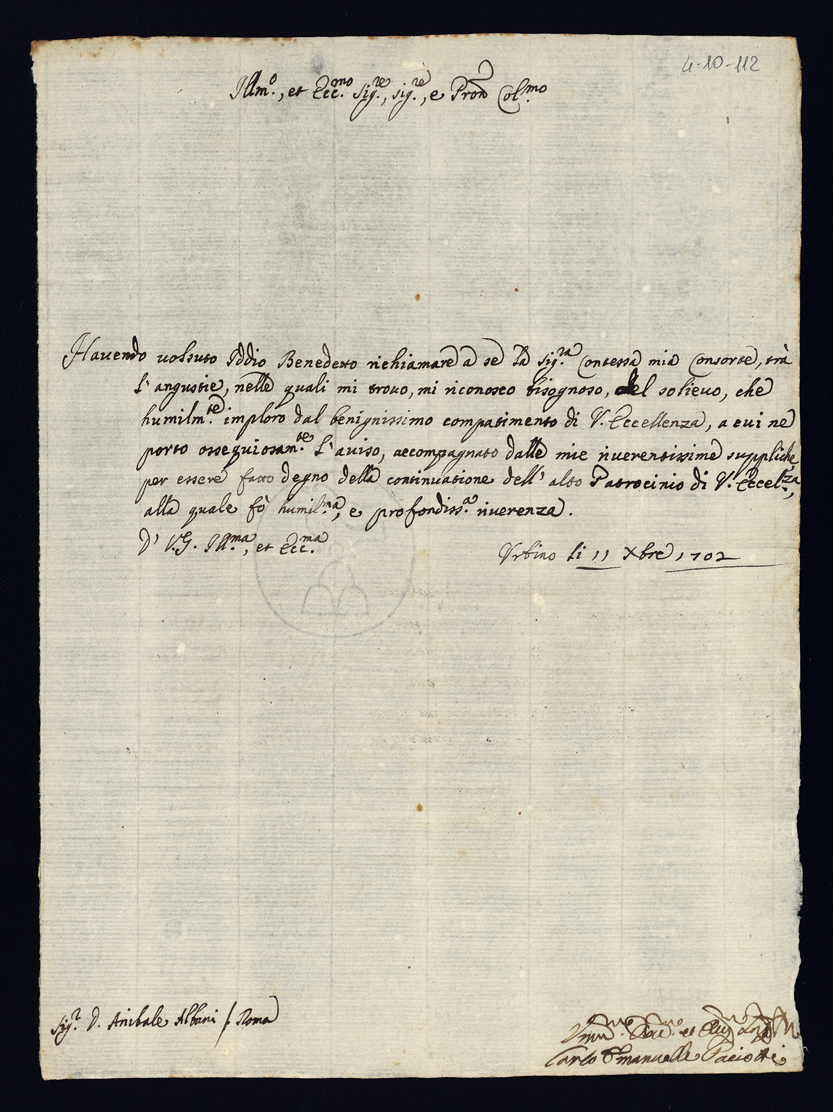 4-10-112
Ill.mo, et Ecc.mo Sig.re, Sig.re, e Pron Col.mo
Havendo volsuto Iddio Benedetto richiamare a se la Sig.ra Contessa mia Consorte, trà
l'angustie, nelle quali mi trovo, mi riconosco bisognoso, del solievo, che
humilm.te imploro dal benignissimo compatimento di V. Eccellenza, a cui ne
porto ossequiosam.te l'aviso, accompagnato dalle mie riverentissime suppliche
per essere fatto degno della continuatione dell'alto Patrocinio di V. Eccel.za,
alla quale fò humil.ma, e profondiss.a riverenza.
D' V.S. Ill.ma, et Ecc.ma
Urbino li 11 Xbre 1702
Sig.r D. Anibale Albani / Roma
Carlo Emanuelle Paciotti